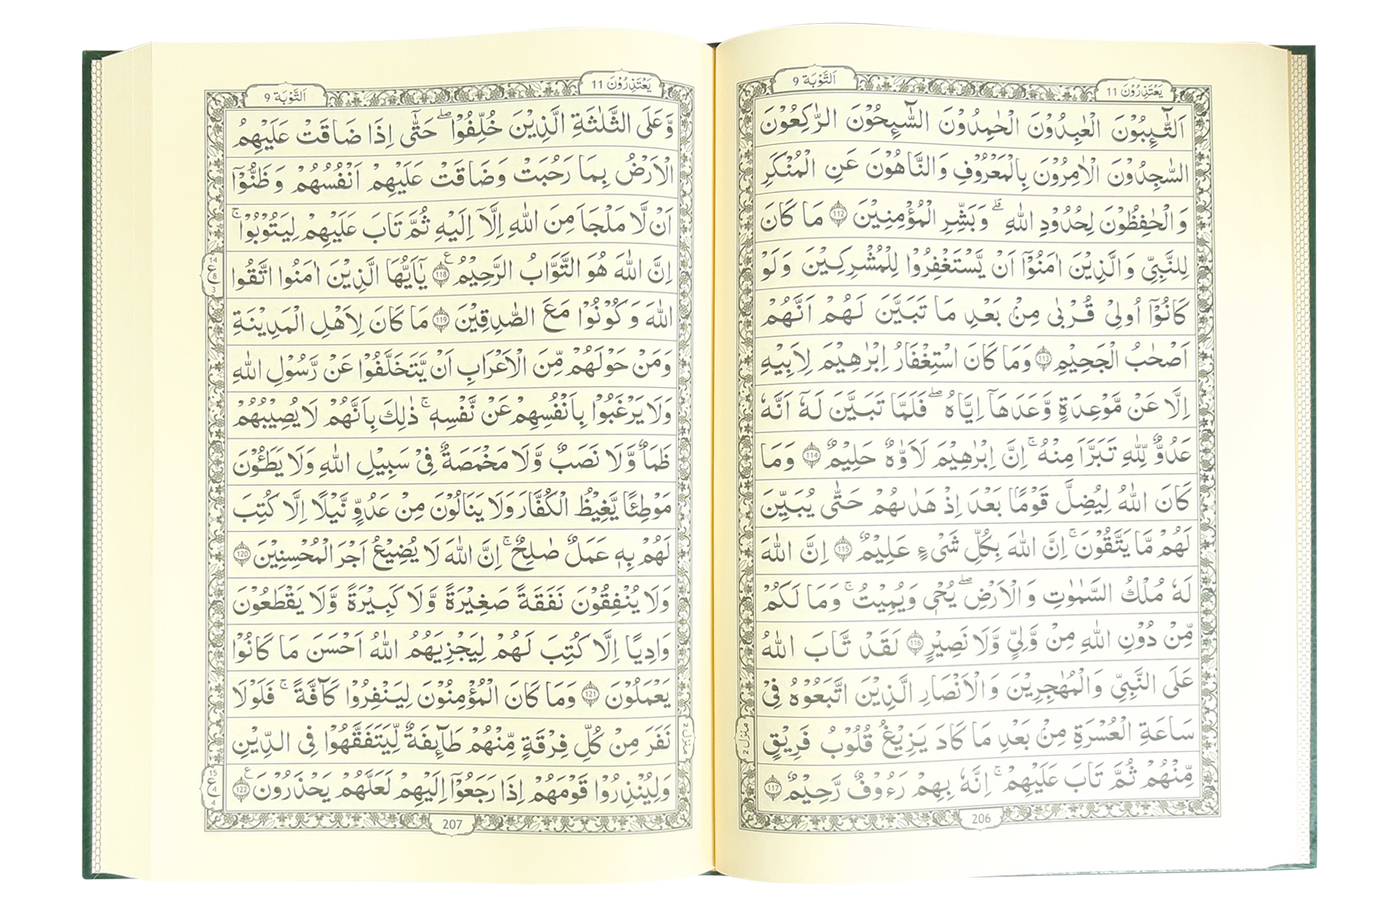 اَلتَّوْبَة 9
يَعْتَذِرُوْنَ 11
اَلتَّآئِبُوْنَ الْعٰبِدُوْنَ الْحٰمِدُوْنَ السَّآئِحُوْنَ الرّٰكِعُوْنَ
السّٰجِدُوْنَ الْاٰمِرُوْنَ بِالْمَعْرُوْفِ وَالنَّاهُوْنَ عَنِ الْمُنْكَرِ
وَالْحٰفِظُوْنَ لِحُدُوْدِ اللّٰهِ ؕ وَبَشِّرِ الْمُؤْمِنِيْنَ 112 مَا كَانَ
لِلنَّبِيِّ وَالَّذِيْنَ اٰمَنُوْۤا اَنْ يَّسْتَغْفِرُوْا لِلْمُشْرِكِيْنَ وَلَوْ
كَانُوْۤا اُولِيْ قُرْبٰى مِنْۢ بَعْدِ مَا تَبَيَّنَ لَهُمْ اَنَّهُمْ
اَصْحٰبُ الْجَحِيْمِ 113 وَمَا كَانَ اسْتِغْفَارُ اِبْرٰهِيْمَ لِاَبِيْهِ
اِلَّا عَنْ مَّوْعِدَةٍ وَّعَدَهَاۤ اِيَّاهُ ۚ فَلَمَّا تَبَيَّنَ لَهٗۤ اَنَّهٗ
عَدُوٌّ لِّلّٰهِ تَبَرَّاَ مِنْهُ ؕ اِنَّ اِبْرٰهِيْمَ لَاَوَّاهٌ حَلِيْمٌ 114 وَمَا
كَانَ اللّٰهُ لِيُضِلَّ قَوْمًۢا بَعْدَ اِذْ هَدٰىهُمْ حَتّٰى يُبَيِّنَ
لَهُمْ مَّا يَتَّقُوْنَ ؕ اِنَّ اللّٰهَ بِكُلِّ شَيْءٍ عَلِيْمٌ 115 اِنَّ اللّٰهَ
لَهٗ مُلْكُ السَّمٰوٰتِ وَالْاَرْضِ ؕ يُحْيٖ وَيُمِيْتُ ؕ وَمَا لَكُمْ
مِّنْ دُوْنِ اللّٰهِ مِنْ وَّلِيٍّ وَّلَا نَصِيْرٍ 116 لَقَدْ تَّابَ اللّٰهُ
عَلَى النَّبِيِّ وَالْمُهٰجِرِيْنَ وَالْاَنْصَارِ الَّذِيْنَ اتَّبَعُوْهُ فِيْ
سَاعَةِ الْعُسْرَةِ مِنْۢ بَعْدِ مَا كَادَ يَزِيْغُ قُلُوْبُ فَرِيْقٍ
مِّنْهُمْ ثُمَّ تَابَ عَلَيْهِمْ ؕ اِنَّهٗ بِهِمْ رَءُوْفٌ رَّحِيْمٌ 117
منزل 2
206
اَلتَّوْبَة 9
يَعْتَذِرُوْنَ 11
وَّعَلَى الثَّلٰثَةِ الَّذِيْنَ خُلِّفُوْا ؕ حَتّٰۤى اِذَا ضَاقَتْ عَلَيْهِمُ
الْاَرْضُ بِمَا رَحُبَتْ وَضَاقَتْ عَلَيْهِمْ اَنْفُسُهُمْ وَظَنُّوْۤا
اَنْ لَّا مَلْجَاَ مِنَ اللّٰهِ اِلَّاۤ اِلَيْهِ ؕ ثُمَّ تَابَ عَلَيْهِمْ لِيَتُوْبُوْا ؕ
اِنَّ اللّٰهَ هُوَ التَّوَّابُ الرَّحِيْمُ 118 يٰۤاَيُّهَا الَّذِيْنَ اٰمَنُوا اتَّقُوا
اللّٰهَ وَكُوْنُوْا مَعَ الصّٰدِقِيْنَ 119 مَا كَانَ لِاَهْلِ الْمَدِيْنَةِ
وَمَنْ حَوْلَهُمْ مِّنَ الْاَعْرَابِ اَنْ يَّتَخَلَّفُوْا عَنْ رَّسُوْلِ اللّٰهِ
وَلَا يَرْغَبُوْا بِاَنْفُسِهِمْ عَنْ نَّفْسِهٖ ؕ ذٰلِكَ بِاَنَّهُمْ لَا يُصِيْبُهُمْ
ظَمَاٌ وَّلَا نَصَبٌ وَّلَا مَخْمَصَةٌ فِيْ سَبِيْلِ اللّٰهِ وَلَا يَطَـُٔوْنَ
مَوْطِئًا يَّغِيْظُ الْكُفَّارَ وَلَا يَنَالُوْنَ مِنْ عَدُوٍّ نَّيْلًا اِلَّا كُتِبَ
لَهُمْ بِهٖ عَمَلٌ صَالِحٌ ؕ اِنَّ اللّٰهَ لَا يُضِيْعُ اَجْرَ الْمُحْسِنِيْنَ 120
وَلَا يُنْفِقُوْنَ نَفَقَةً صَغِيْرَةً وَّلَا كَبِيْرَةً وَّلَا يَقْطَعُوْنَ
وَادِيًا اِلَّا كُتِبَ لَهُمْ لِيَجْزِيَهُمُ اللّٰهُ اَحْسَنَ مَا كَانُوْا
يَعْمَلُوْنَ 121 وَمَا كَانَ الْمُؤْمِنُوْنَ لِيَنْفِرُوْا كَآفَّةً ؕ فَلَوْلَا
نَفَرَ مِنْ كُلِّ فِرْقَةٍ مِّنْهُمْ طَآئِفَةٌ لِّيَتَفَقَّهُوْا فِي الدِّيْنِ
وَلِيُنْذِرُوْا قَوْمَهُمْ اِذَا رَجَعُوْۤا اِلَيْهِمْ لَعَلَّهُمْ يَحْذَرُوْنَ 122
منزل 2
207